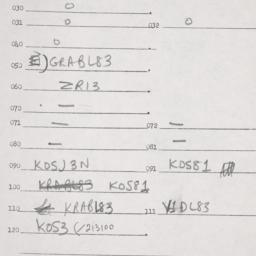 030 0
031 0 032 0
040 0
050 GRABL83
060 ZR13
070 —
071 — 072 —
080 — 081 —
090 KOSJ3N 091 KOS81
100 KRABL83 KOS81
110 KRABL83 111 DL83
120 KOS3